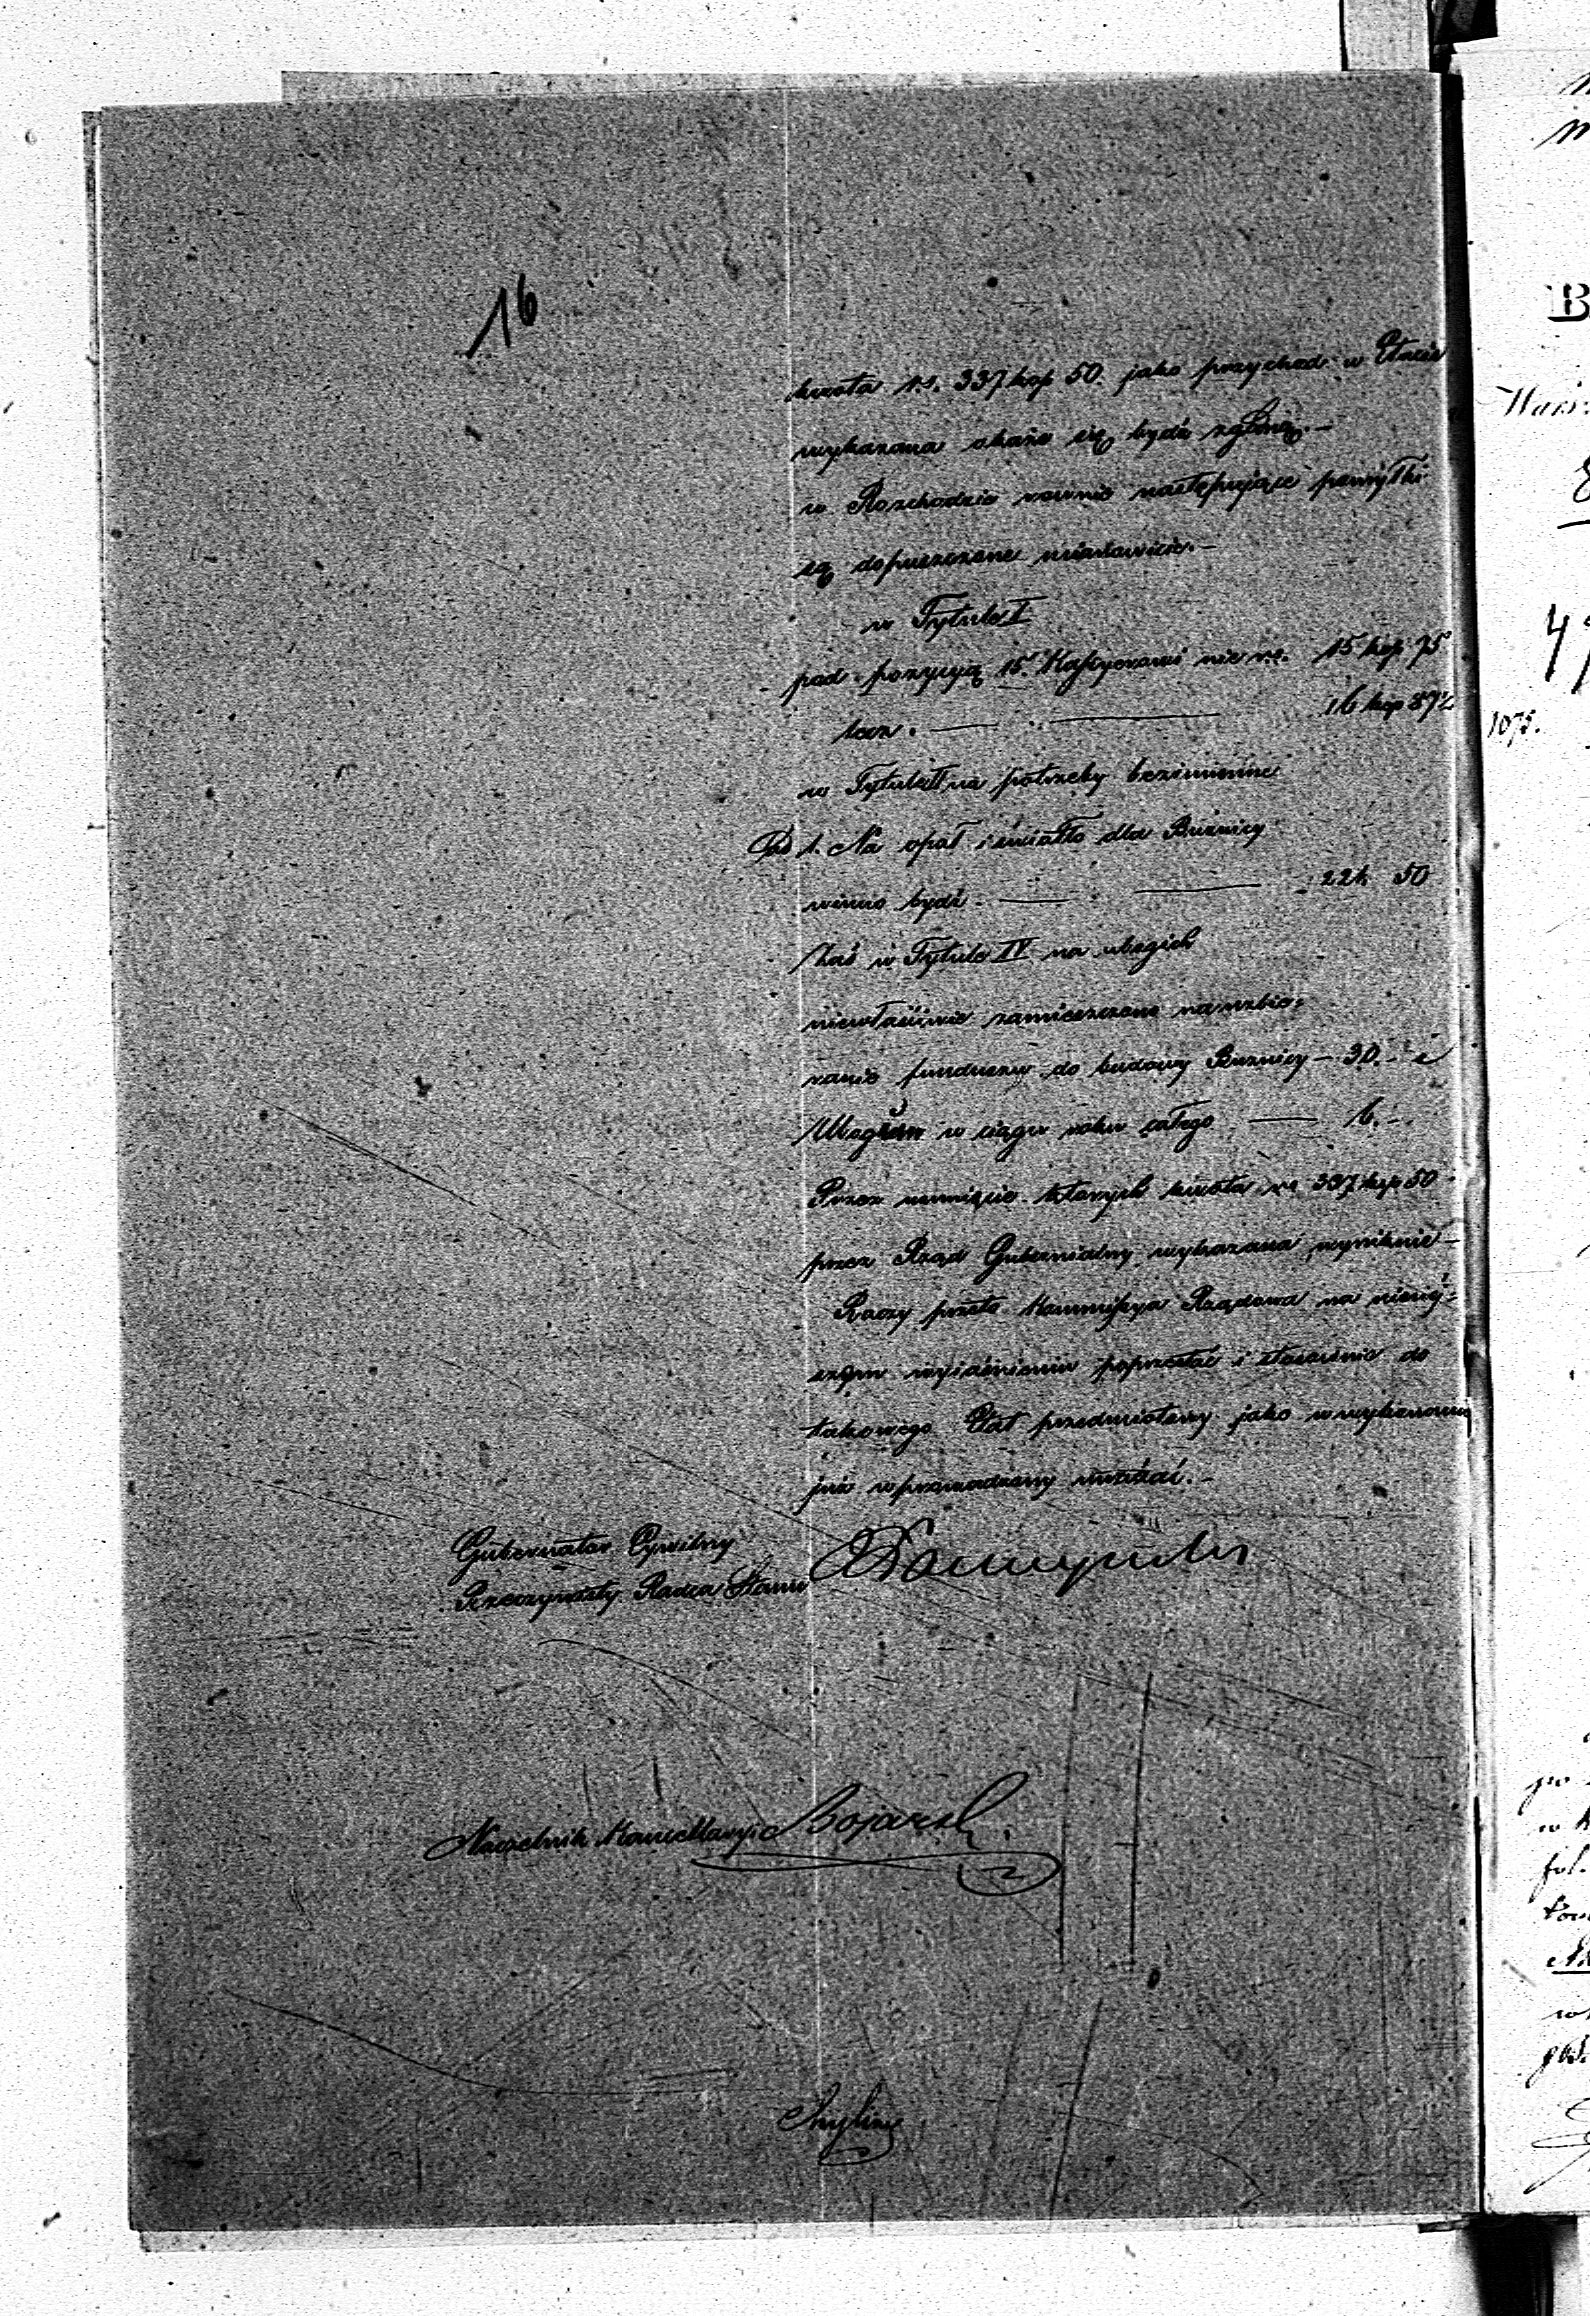 16
kwota r.s. 337 kop 50. jako przychód w Etacie
wykazana okaże się bydź zgodną.—
w Rozchodzie równie następujące pomyłki
są dopuszczone mianowicie.—
w Tytule I
pod pozycyą 15. Kassyerowi nie r.s. 15 kop 75
lecz . — " — 16 kop 87½
w Tytule II na potrzeby bezimienne
Po 1. Na opał i światło dla Bużnicy
winno bydź . — 221. 50
Zaś w Tytule IV na ubogich
niewłaściwie zamieszczono na uzbie=
ranie funduszu do budowy Bużnicy — 30. — i
w ciągu roku całego — 6. —
Przez usunięcie których kwota rs 337 kop 50
przez Rząd Gubernialny wykazana wyniknie —
Raczy przeto Kommissya Rządowa na niniej=
szym wyjaśnieniu poprzestać i stosownie do
takowego Etat przedmiotowy jako w wykonanie
już wprowadzony uważać.—
Gubernator Cywilny
Rzeczywisty Radca Stanu
Naczelnik Kancellaryi Bojarsk
Wars.
1075.
po
fol.